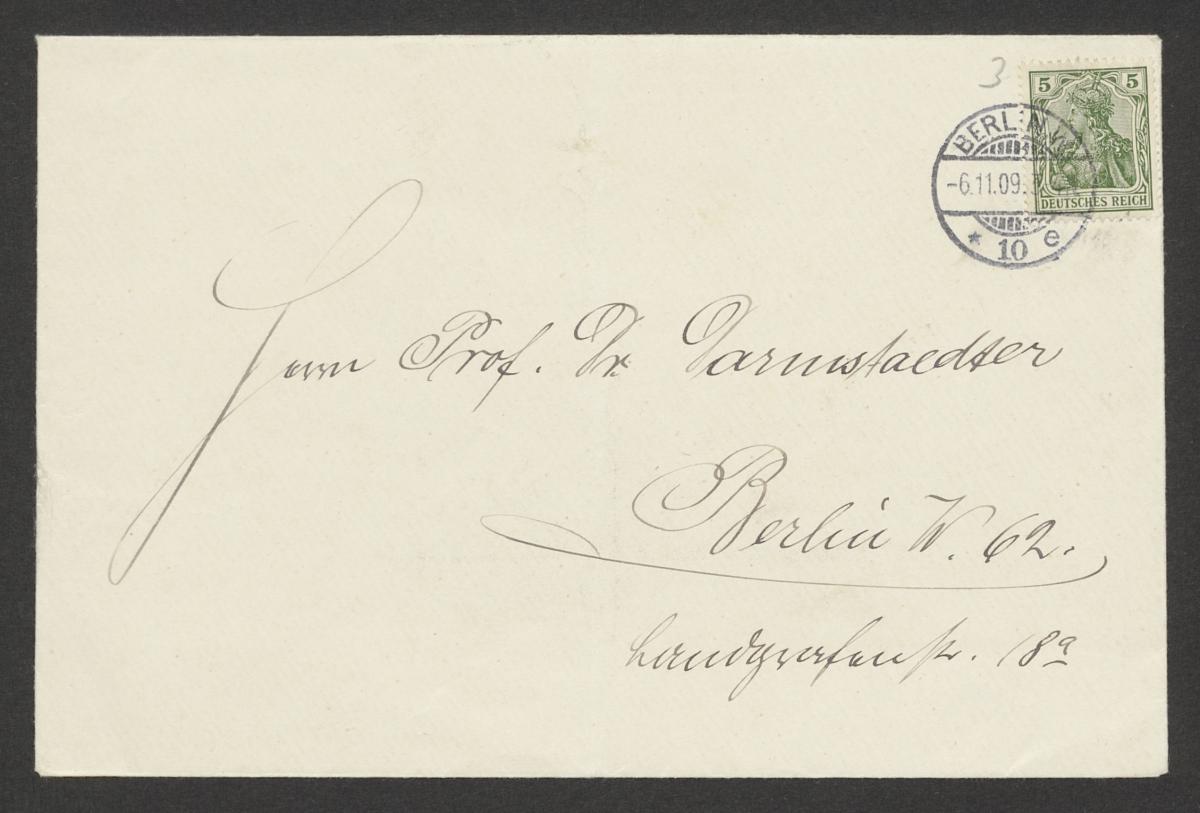 3
5 5
DEUTSCHES REICH
BERLIN
-6.11.09.
* 10 e
Herrn Prof. Dr. Darmstaedter
Berlin W. 62.
Landgrafenstr. 18a